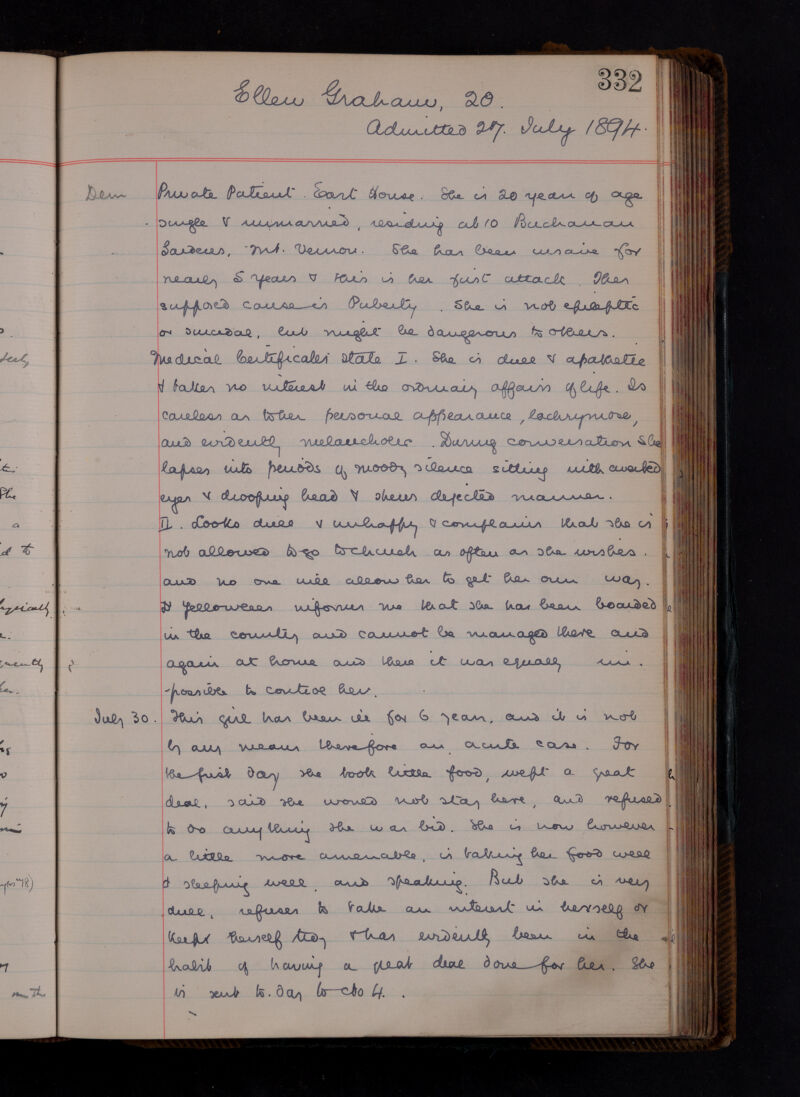 332
Ellen Graham, 20.
Admitted 27. July 1894.
Dem Private Patient. East House. She is 20 years of age
single & unmarried, residing at 10 Buchanan
Gardens, Mt. Vernon. She has been insane for
nearly 5 years & this is her first attack. The
supposed cause is Puberty. She is not epileptic
or suicidal, but might be dangerous to others.
Medical Certificates state I. She is dull & apathetic
& takes no interest in the ordinary affairs of life. Is
careless as to her personal appearance, lachrymose,
and evidently melancholic. During conversation she
lapses into periods of moody silence sitting with averted
eyes & drooping head & shews dejected manner.
II. Looks dull & unhappy & complains that she is
not allowed to go to church as often as she wishes.
and no one will allow her to get her own way.
Dr Yellowlees informs me that she has been boarded
in the country and cannot be managed there and
again at home and there it was equally im-
-possible to control her.
July 30. This girl has been ill for 6 years, and it is not
by any means therefore an acute case. For
the first day she took little food, wept a great
deal, said she would not stay here, and refused
to do anything she was bid. She is now however
a little more amenable, is taking her food well
& sleeping well, and speaking. But she is very
dull, refuses to take an interest in herself or
keep herself tidy & has evidently been in the
habit of having a great deal done for her. She
is sent to-day to 4.